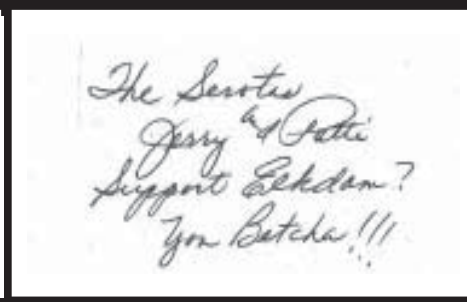 The Serotas
Jerry and Patti
Support Elkdom?
You Betcha!!!